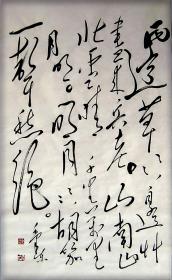 边草〻边草
尽来兵老山南山
北雪晴千里万里
月明明月〻胡笳
一声愁绝